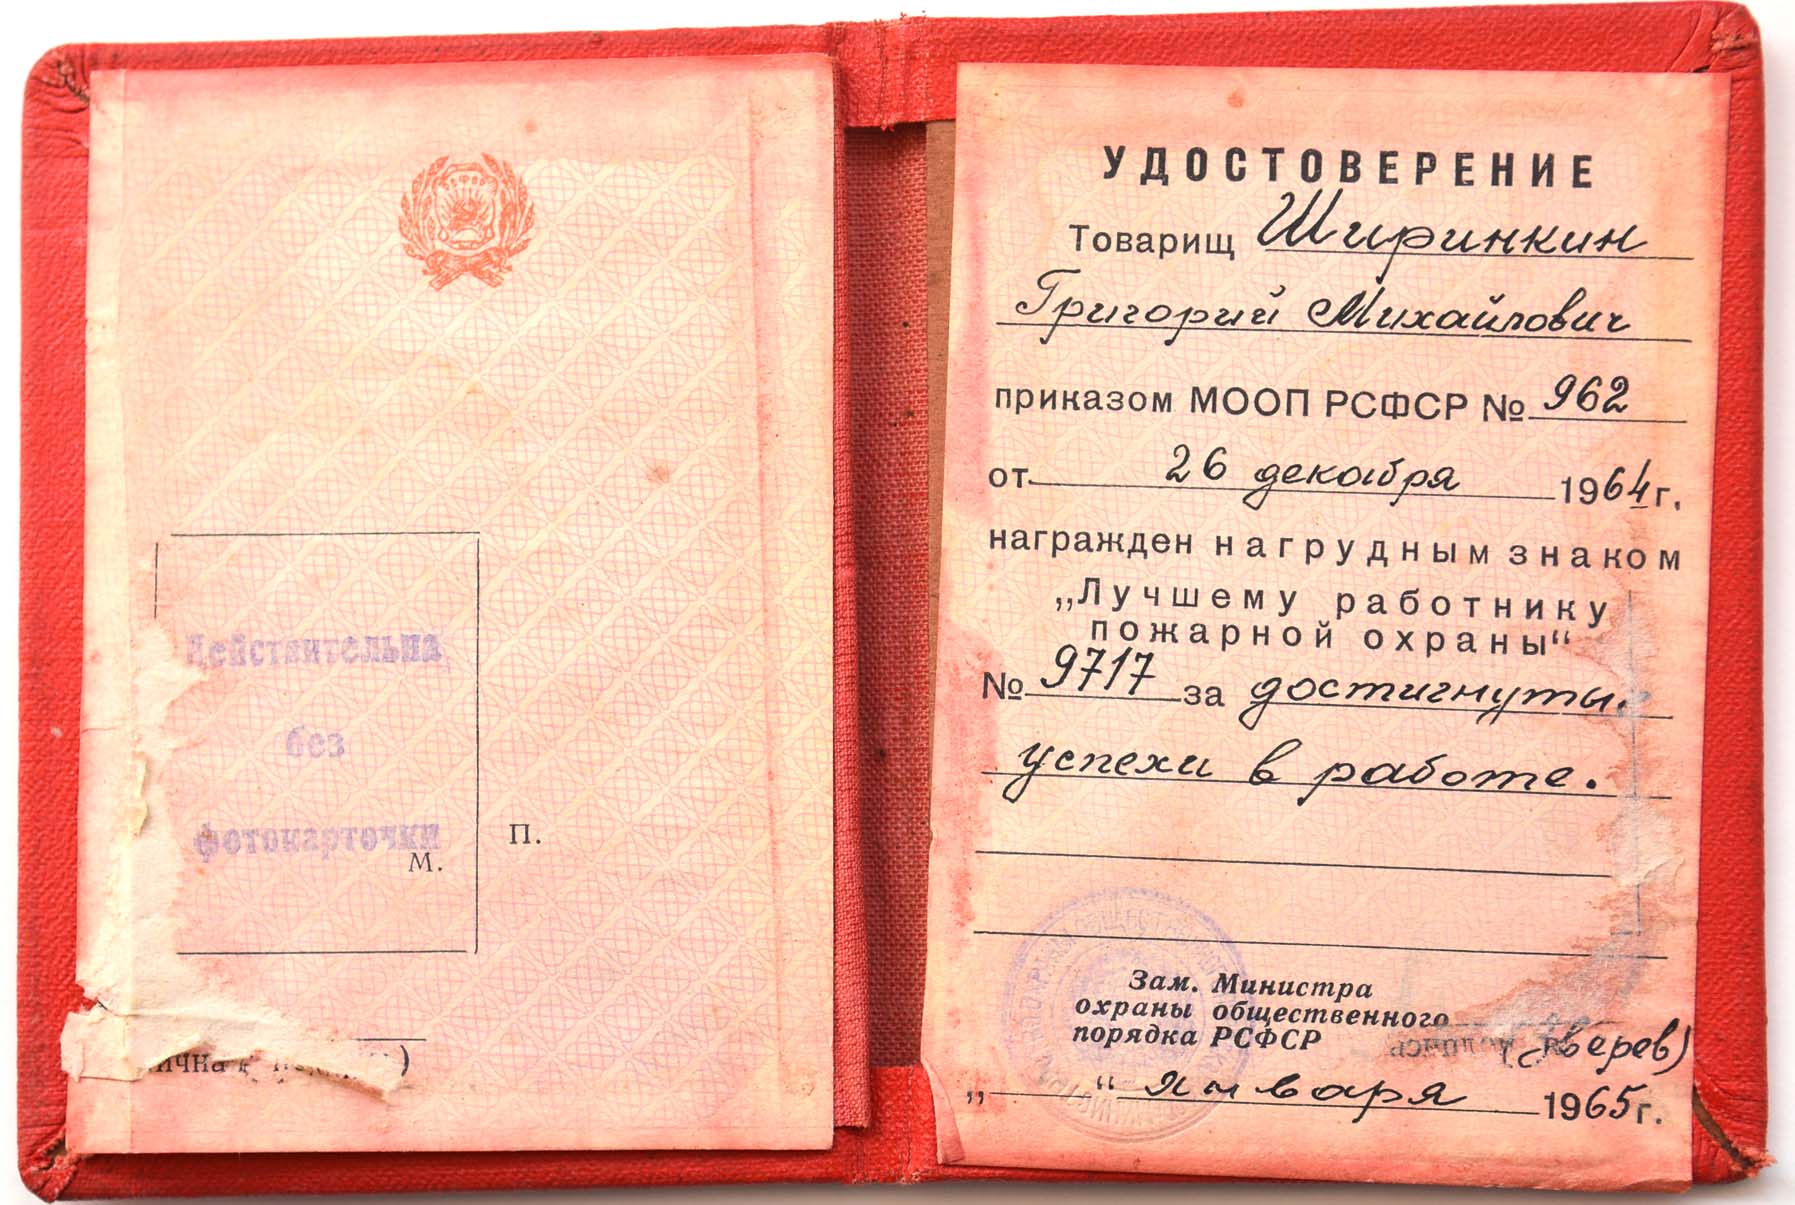 Действительна
без
фотокарточки
М. П.
УДОСТОВЕРЕНИЕ
Товарищ Ширинкин
Григорий Михайлович
приказом МООП РСФСР № 962
от 26 декабря 1964 г.
награжден нагрудным знаком
„Лучшему работнику
пожарной охраны“
№ 9717 за достигнуты.
успехи в работе.
Зам. Министра
охраны общественного
порядка РСФСР (Зверев)
„ “ января 1965 г.